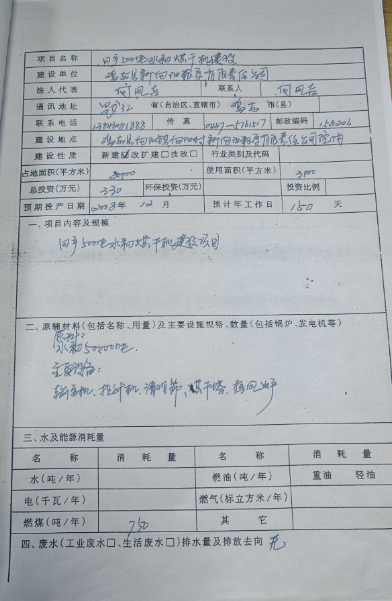 项目名称 日产500吨水稻烘干机建设
建设单位 鸡东县新向阳粮库有限责任公司
法人代表 何凤岳 联系人 何凤岳
通讯地址 省(自治区、直辖市) 鸡东 市(县)
联系电话 传真 0467-5761517 邮政编码 158206
建设地点
建设性质 新建 改扩建□技改□ 行业类别及代码
占地面积(平方米) 使用面积(平方米)
总投资(万元) 330 环保投资(万元) 投资比例
预期投产日期 2003年 12月 预计年工作日 150 天
一、项目内容及规模
日产500吨水稻烘干机建设项目
二、原辅材料(包括名称、用量)及主要设施规格、数量(包括锅炉、发电机等)
原料:
水稻50000吨
主要设备:
提升机、清理筛、烘干塔、热风炉
三、水及能源消耗量
名称 消耗量 名称 消耗量
水(吨/年) 燃油(吨/年) 重油 轻油
电(千瓦/年) 燃气(标立方米/年)
燃煤(吨/年) 750 其它
四、废水(工业废水□、生活废水□)排水量及排放去向 无